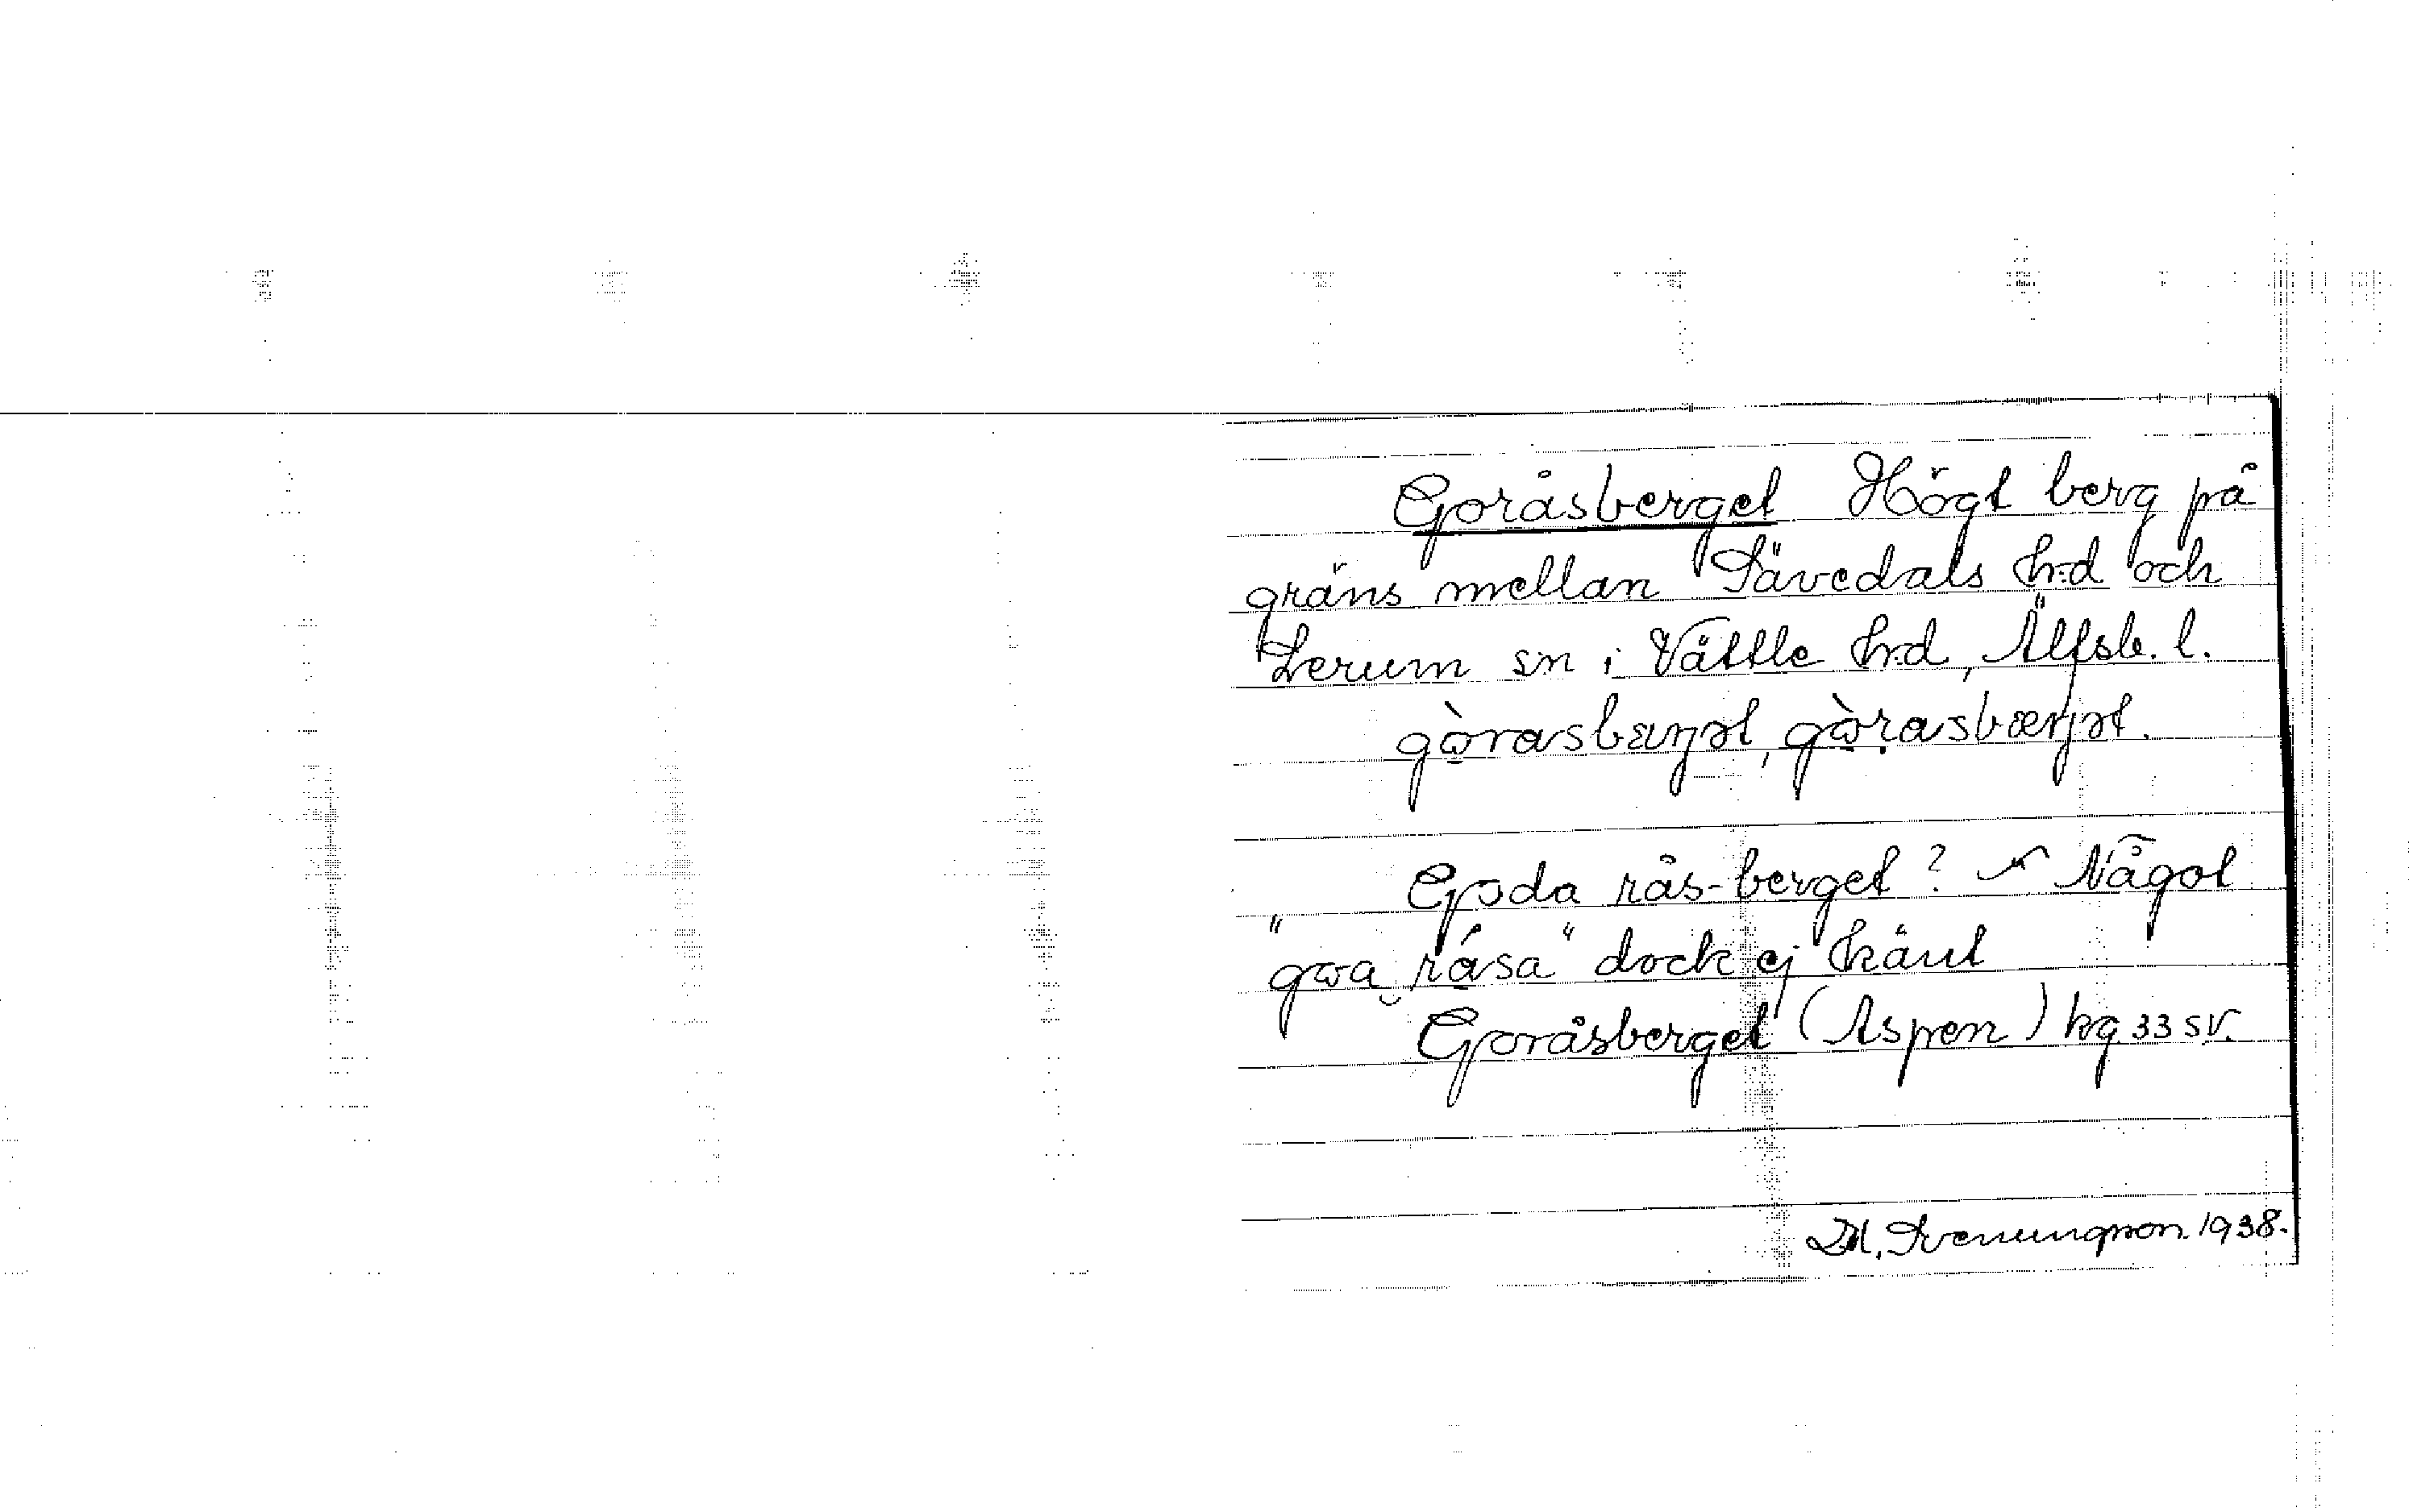 Goråsberget Högt berg på
gräns mellan Sävedals hrd och
Lerum sn i Vättle hrd, Älfsb. l.
gòrasbærjət, gòrasbærjət.
Goda rås-berget? Något
"gωa råsa" dock ej känt
Goråsberget (Aspen) hg 33 SV.
Svenungsson 1938.